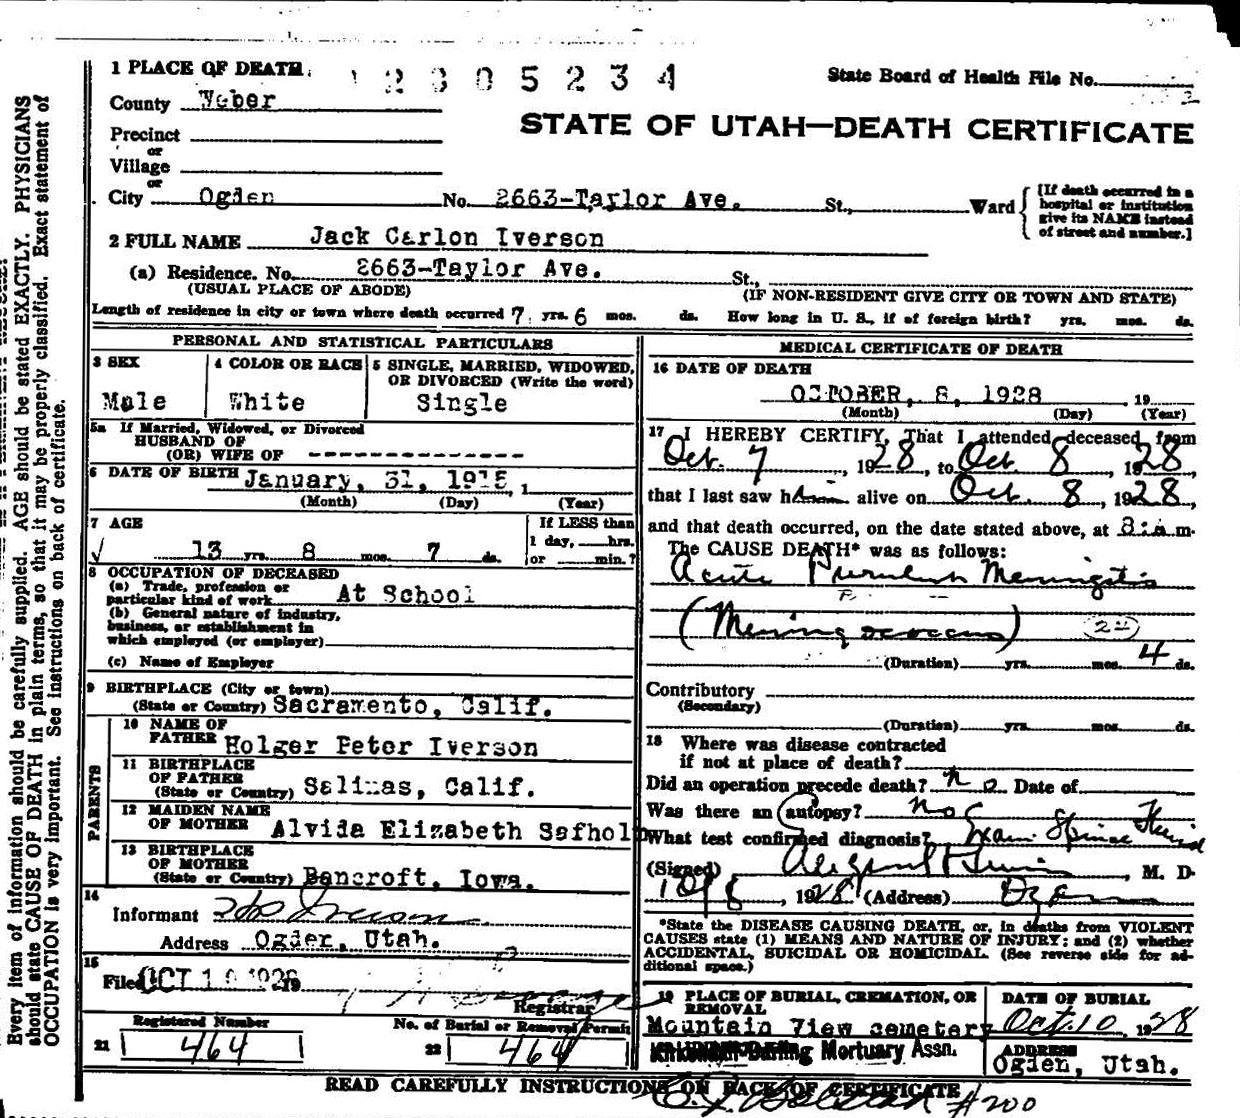 1 PLACE OF DEATH. 2 3 0 5 2 3 4 State Board of Health File No.
County Weber
STATE OF UTAH—DEATH CERTIFICATE
Precinct
or
Village
or
City Ogden No. 2663-Taylor Ave. St., Ward
{If death occurred in a
hospital or institution
give its NAME instead
of street and number.]
2 FULL NAME Jack Carlon Iverson
(a) Residence. No. 2663-Taylor Ave. St.,
(USUAL PLACE OF ABODE) (IF NON-RESIDENT GIVE CITY OR TOWN AND STATE)
Length of residence in city or town where death occurred 7 yrs. 6 mos. ds. How long in U. S., if of foreign birth? yrs. mos. ds.
PERSONAL AND STATISTICAL PARTICULARS
3 SEX 4 COLOR OR RACE 5 SINGLE, MARRIED, WIDOWED,
OR DIVORCED (Write the word)
Male White Single
5a If Married, Widowed, or Divorced
HUSBAND OF
(OR) WIFE OF --------------
6 DATE OF BIRTH January, 31, 1915, 1
(Month) (Day) (Year)
7 AGE If LESS than
1 day, hrs.
13 yrs. 8 mos. 7 ds. or min.?
8 OCCUPATION OF DECEASED
(a) Trade, profession or
particular kind of work At School
(b) General nature of industry,
business, or establishment in
which employed (or employer)
(c) Name of Employer
9 BIRTHPLACE (City or town)
(State or Country) Sacramento, Calif.
PARENTS
10 NAME OF
FATHER Holger Peter Iverson
11 BIRTHPLACE
OF FATHER
(State or Country) Salinas, Calif.
12 MAIDEN NAME
OF MOTHER Alvida Elizabeth Safholm
13 BIRTHPLACE
OF MOTHER
(State or Country) Bancroft, Iowa.
14
Informant Iverson
Address Ogden, Utah.
15
Filed OCT 10 1928 19
Registrar
Registered Number No. of Burial or Removal Permit
21 464 22 464
MEDICAL CERTIFICATE OF DEATH
16 DATE OF DEATH
OCTOBER, 8, 1928 , 19
(Month) (Day) (Year)
17 I HEREBY CERTIFY, That I attended deceased from
Oct. 7, 1928, to Oct 8, 1928
that I last saw him alive on Oct. 8, 1928,
and that death occurred, on the date stated above, at 8:a m.
The CAUSE DEATH* was as follows:
Acute Purulent Meningitis
(Meningococcus) 24
(Duration) yrs. mos. 4 ds.
Contributory
(Secondary)
(Duration) yrs. mos. ds.
18 Where was disease contracted
if not at place of death?
Did an operation precede death? no Date of
Was there an autopsy? no
What test confirmed diagnosis? Exam Spinal Fluid
(Signed) , M. D.
10/8, 1928 (Address) Ogden
*State the DISEASE CAUSING DEATH, or, in deaths from VIOLENT
CAUSES state (1) MEANS AND NATURE OF INJURY; and (2) whether
ACCIDENTAL, SUICIDAL OR HOMICIDAL. (See reverse side for ad-
ditional space.)
19 PLACE OF BURIAL, CREMATION, OR
REMOVAL
Mountain View cemetery
DATE OF BURIAL
Oct. 10 1928
Mortuary Assn.
ADDRESS
Ogden, Utah.
READ CAREFULLY INSTRUCTIONS ON BACK OF CERTIFICATE
#200
Every item of information should be carefully supplied. AGE should be stated EXACTLY. PHYSICIANS
should state CAUSE OF DEATH in plain terms, so that it may be properly classified. Exact statement of
OCCUPATION is very important. See instructions on back of certificate.